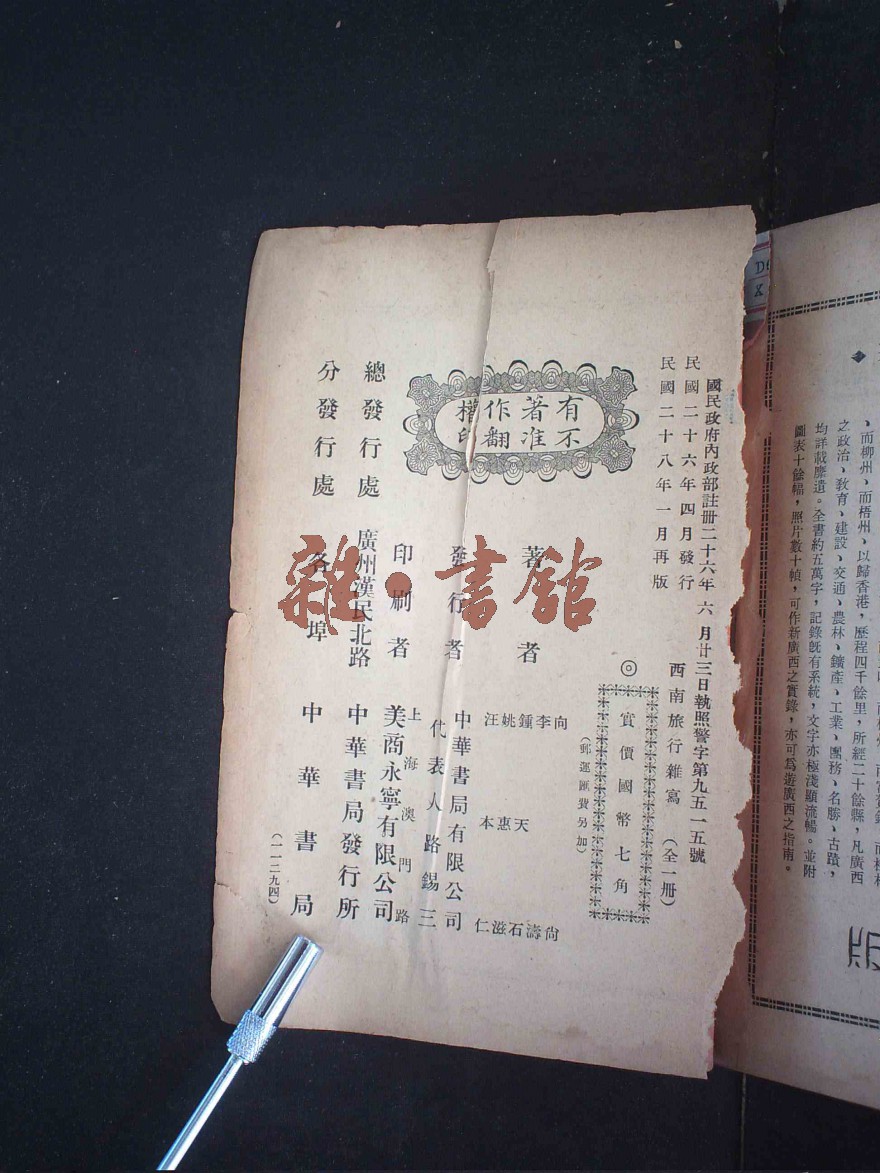 國民政府內政部註册二十六年六月廿三日執照警字第九五一五號
民國二十六年四月發行
民國二十八年一月再版
西南旅行雜寫（全一册）
◎實價國幣七角
（郵運匯費另加）
有著作權
不准翻印
著者
向尚
李濤
鍾天石
姚惠滋
汪本仁
發行者
中華書局有限公司
代表人路錫三
印刷者
上海澳門路
美商永寧有限公司
總發行處
廣州漢民北路
中華書局發行所
分發行處
各埠
中華書局
（一一二九四）
雜·書館
、而柳州、而梧州、以歸香港，歷程四千餘里，所經二十餘縣，凡廣西
之政治、敎育、建設、交通、農林、鑛產、工業、團務、名勝、古蹟，
均詳載靡遺。全書約五萬字，記錄旣有系統，文字亦極淺顯流暢。並附
圖表十餘幅，照片數十幀，可作新廣西之實錄，亦可爲遊廣西之指南。
版